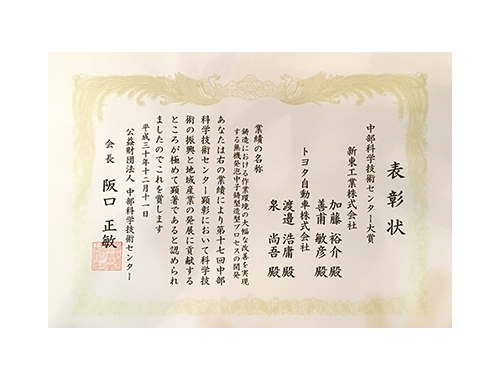 表彰状
中部科学技術センター大賞
新東工業株式会社
加藤 裕介 殿
善甫 敏彦 殿
トヨタ自動車株式会社
渡邉 浩庸 殿
泉 尚吾 殿
業績の名称
鋳造における作業環境の大幅な改善を実現
する無機発泡中子鋳型造型プロセスの開発
あなたは右の業績により第十七回中部
科学技術センター顕彰において科学技
術の振興と地域産業の発展に貢献する
ところが極めて顕著であると認められ
ましたのでこれを賞します
平成三十年十二月十一日
公益財団法人 中部科学技術センター
会長 阪口 正敏